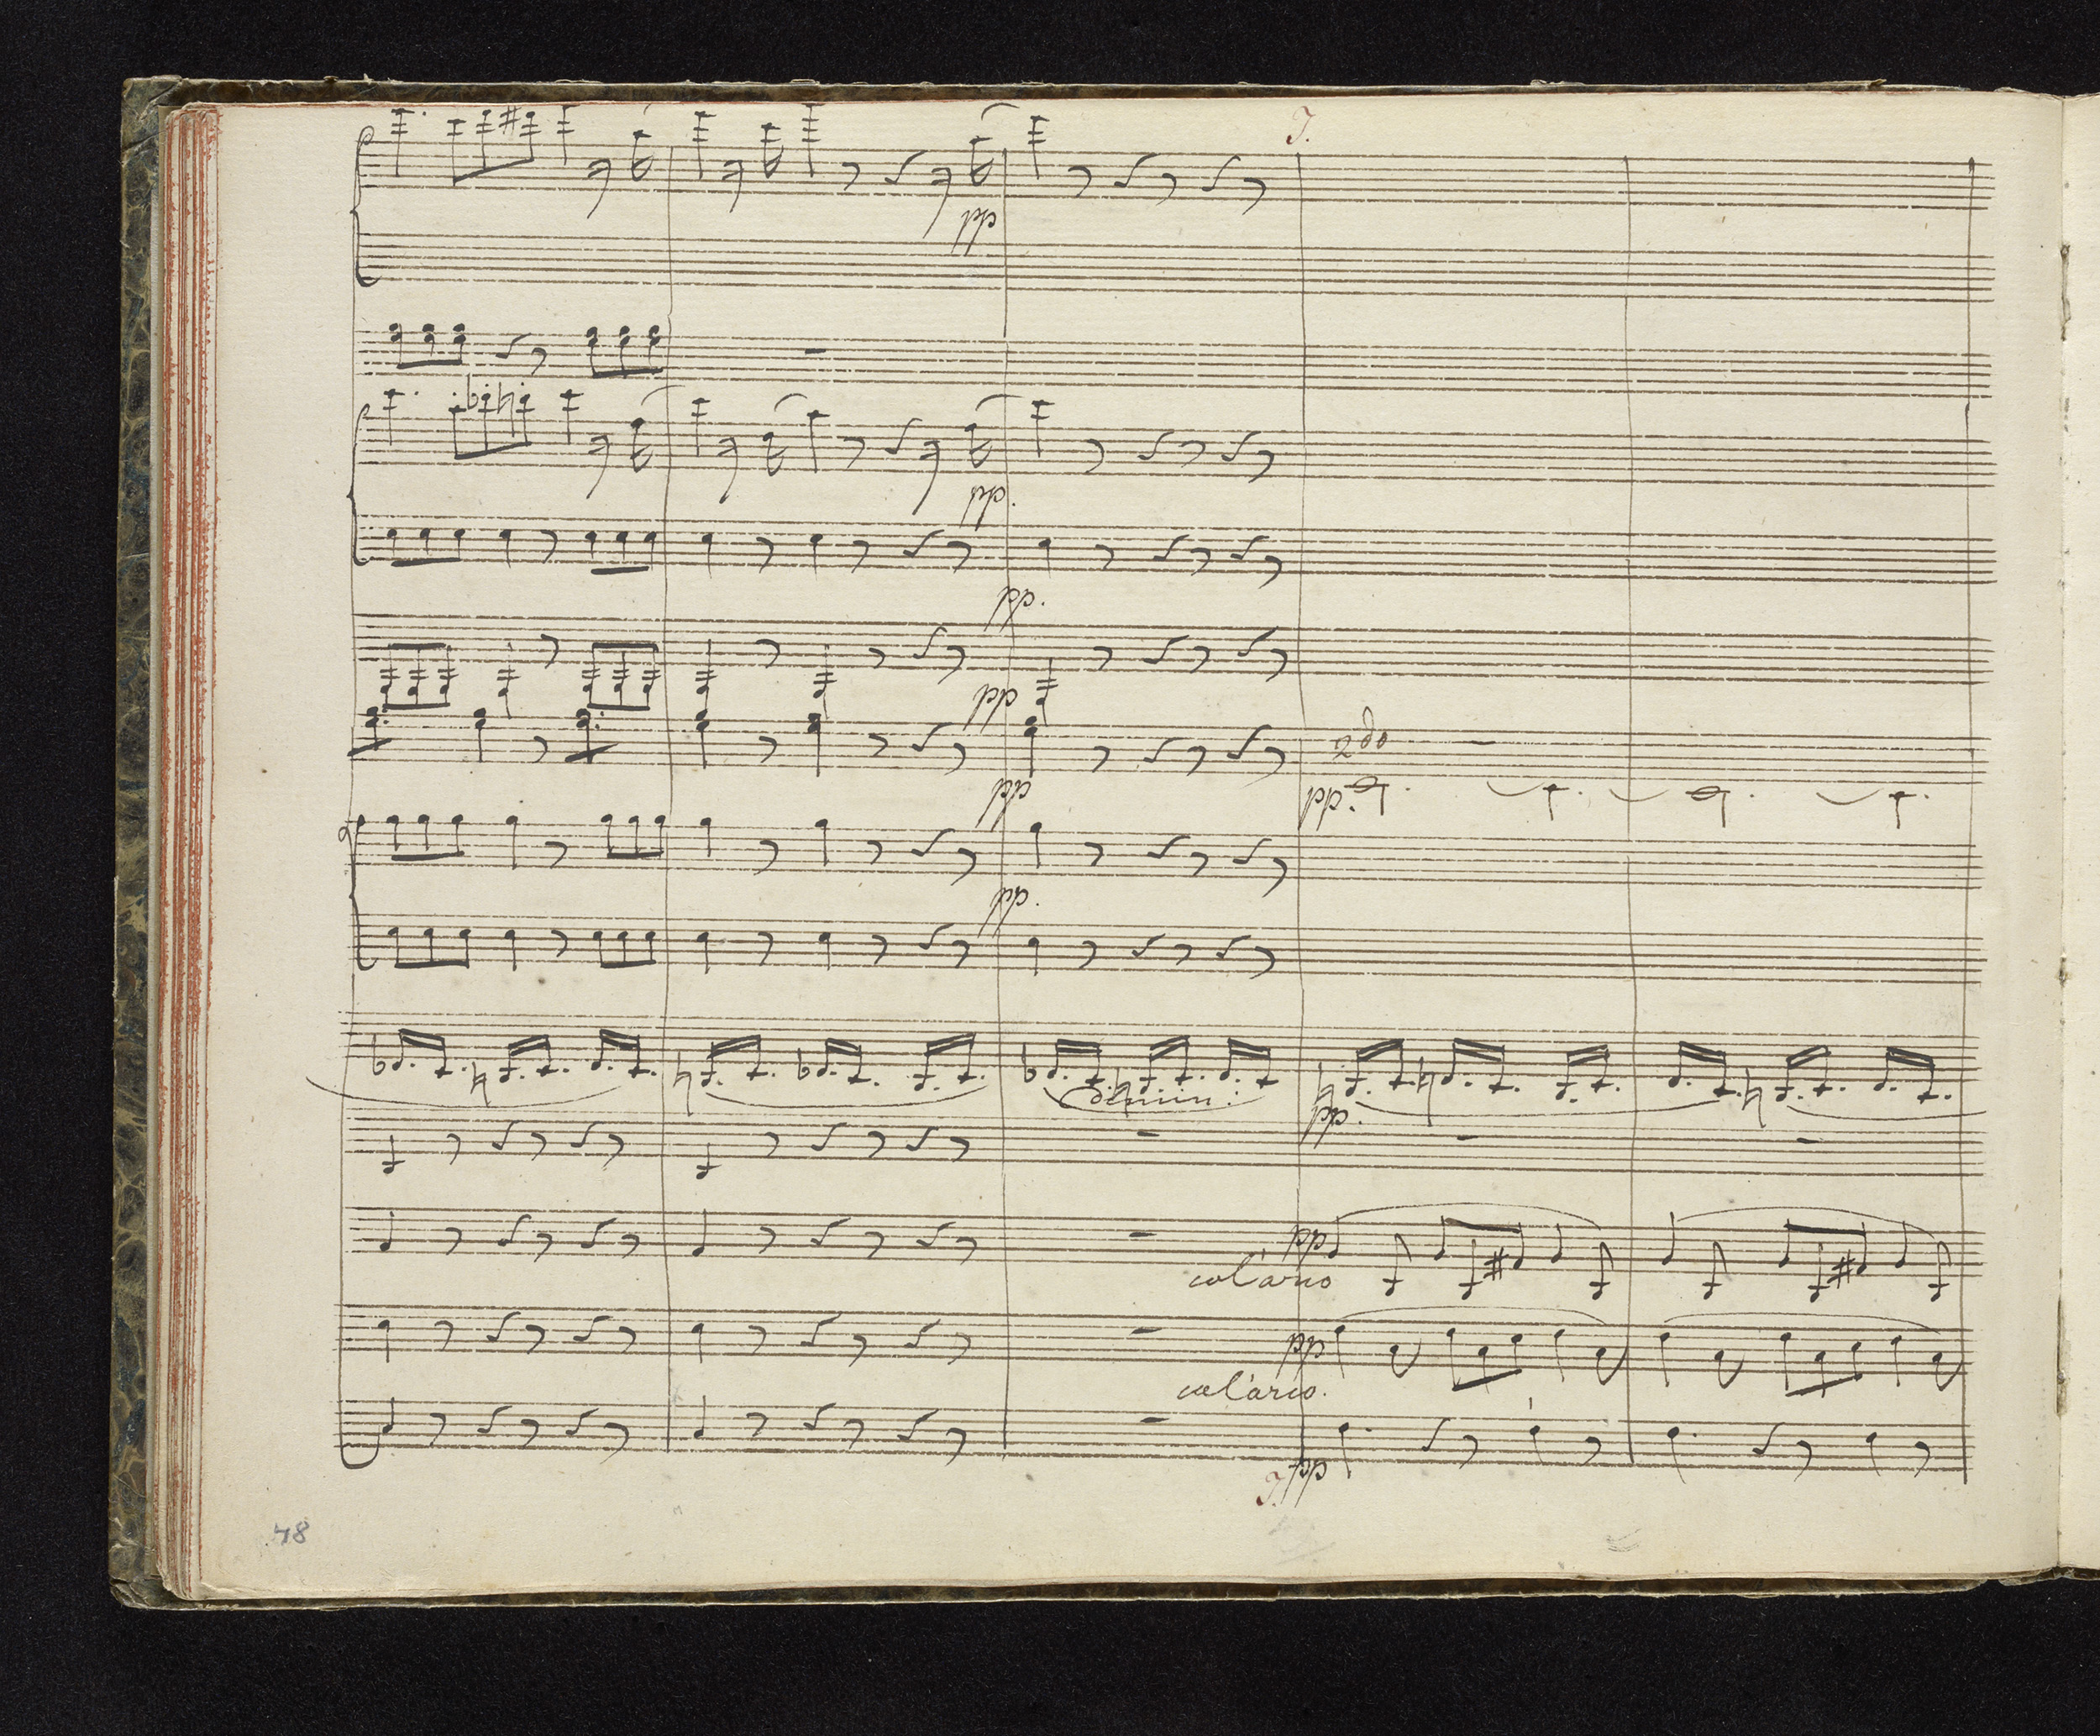 J.
pp
pp.
pp.
pp
pp
2do
pp.
pp.
dimin:
pp.
pp
col'arco
pp
col'arco.
J.
pp
48